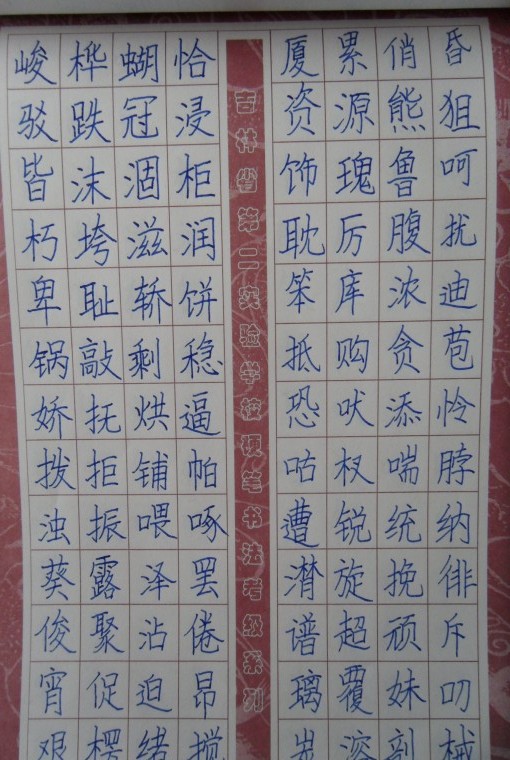 峻桦蝴恰
驳跌冠浸
皆沫涸柜
朽垮滋润
卑耻轿饼
锅敲剩稳
娇抚烘逼
拨拒铺帕
浊振喂啄
葵露泽罢
俊聚沾倦
宵促迫昂
艰楞绪搅
吉林省第二实验学校硬笔书法考级系列
厦累俏昏
资源熊狙
饰瑰鲁呵
耽厉腹扰
笨库浓迪
抵购贪苞
恐吠添怜
咕杈喘脖
遭锐统纳
潸旋挽徘
谱超顽斥
璃覆妹叨
溶剖械